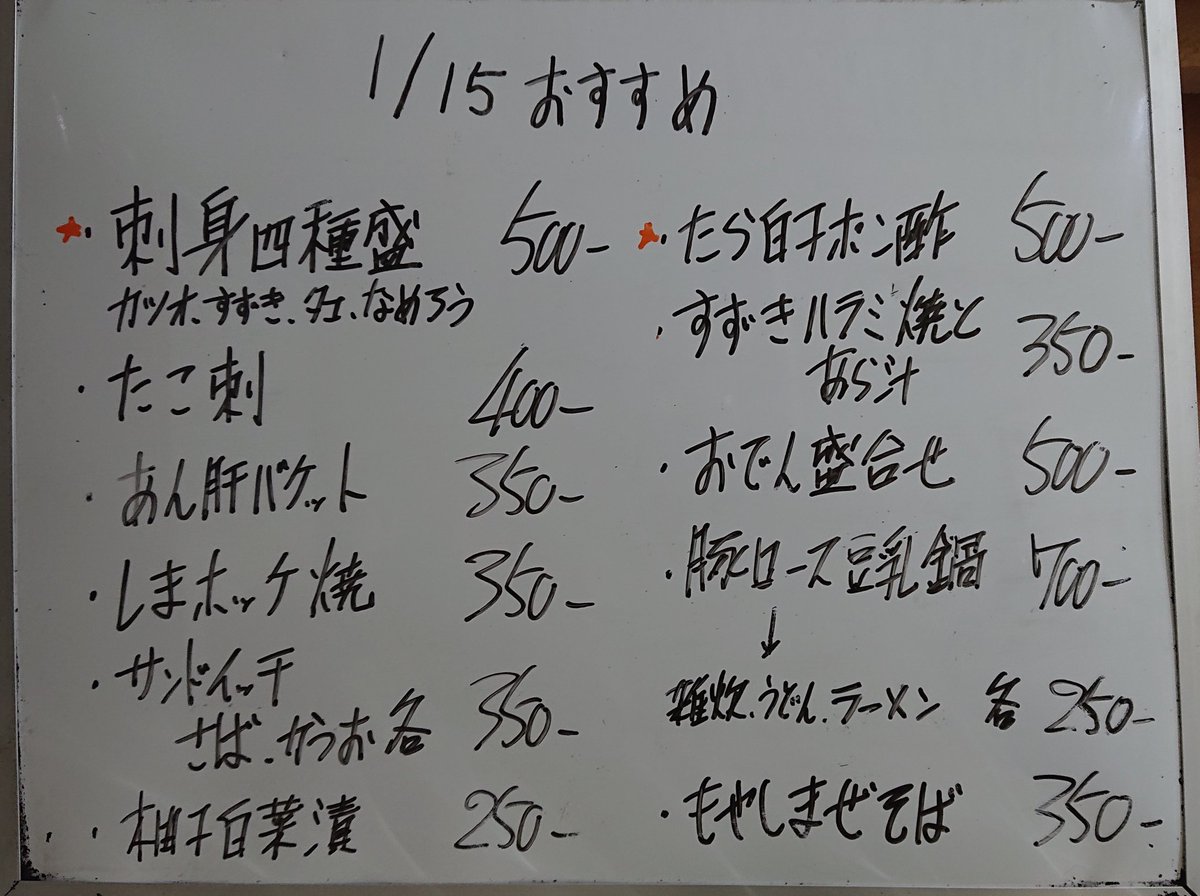 1/15 おすすめ
・刺身四種盛 500-
カツオ、すずき、タエ、なめろう
・たこ刺 400-
・あん肝バケット 350-
・しまホッケ焼 350-
・サンドイッチ
さば・かつお各 350-
・柚子白菜漬 250-
・たら白子ポン酢 500-
・すずきハラミ焼と
あら汁 350-
・おでん盛合せ 500-
・豚ロース豆乳鍋 700-
↓
雑炊、うどん、ラーメン 各250-
・もやしまぜそば 350-